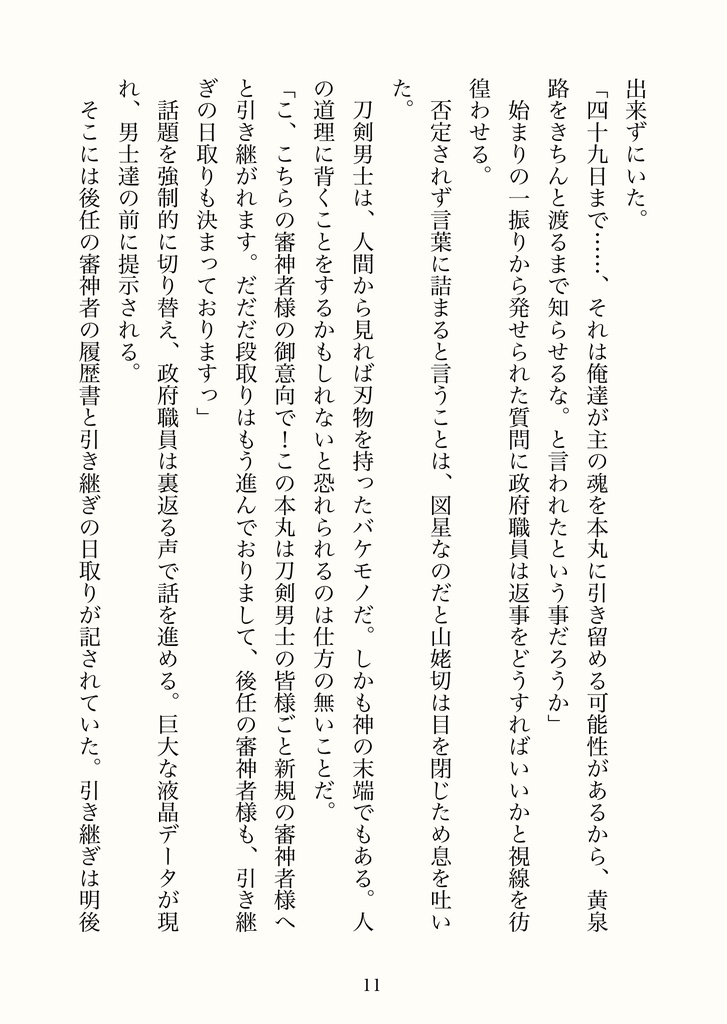 出来ずにいた。
「四十九日まで……、それは俺達が主の魂を本丸に引き留める可能性があるから、黄泉
路をきちんと渡るまで知らせるな。と言われたという事だろうか」
　始まりの一振りから発せられた質問に政府職員は返事をどうすればいいかと視線を彷
徨わせる。
　否定されず言葉に詰まると言うことは、図星なのだと山姥切は目を閉じため息を吐い
た。
　刀剣男士は、人間から見れば刃物を持ったバケモノだ。しかも神の末端でもある。人
の道理に背くことをするかもしれないと恐れられるのは仕方の無いことだ。
「こ、こちらの審神者様の御意向で！この本丸は刀剣男士の皆様ごと新規の審神者様へ
と引き継がれます。だだだ段取りはもう進んでおりまして、後任の審神者様も、引き継
ぎの日取りも決まっておりますっ」
　話題を強制的に切り替え、政府職員は裏返る声で話を進める。巨大な液晶データが現
れ、男士達の前に提示される。
　そこには後任の審神者の履歴書と引き継ぎの日取りが記されていた。引き継ぎは明後
11